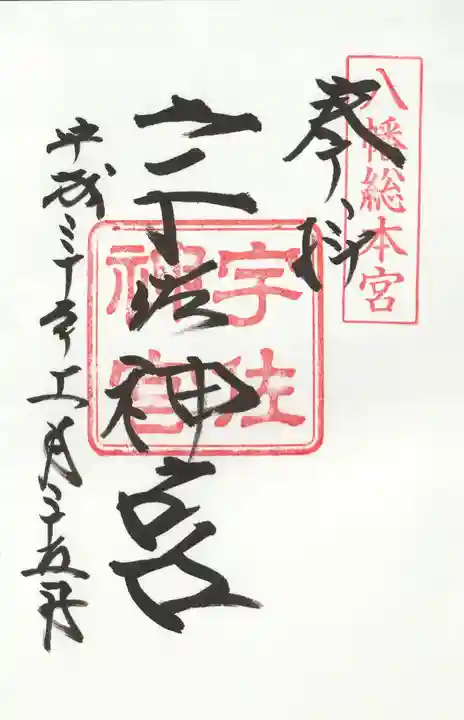 八幡總本宮
奉拝
宇佐神宮
宇佐
神宮
平成三十年十一月二十五日